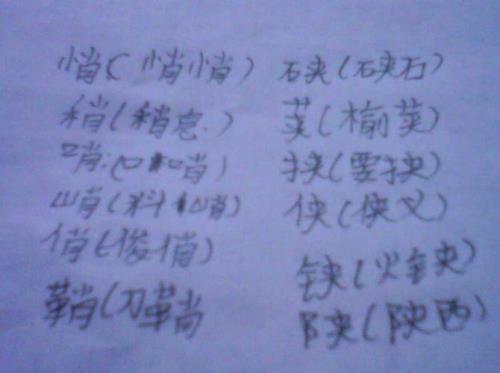 悄(悄悄)
稍(稍息.)
哨(口哨)
峭(料峭)
俏(俊俏)
鞘(刀鞘
硖(硖石)
荚(榆荚)
挟(要挟)
侠(侠义)
铗(火铗)
陕(陕西)